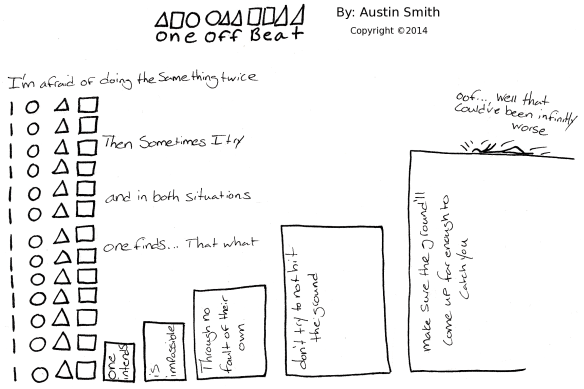 one off Beat
By: Austin Smith
Copyright ©2014
I'm afraid of doing the Same thing twice
Then Sometimes I try
and in both situations
one finds... That what
one
intends
is
impossible
Through no
fault of their
own
don't try to not hit
the ground
make sure the ground'll
come up far enough to
catch you
oof..., well that
Could've been infinitly
worse